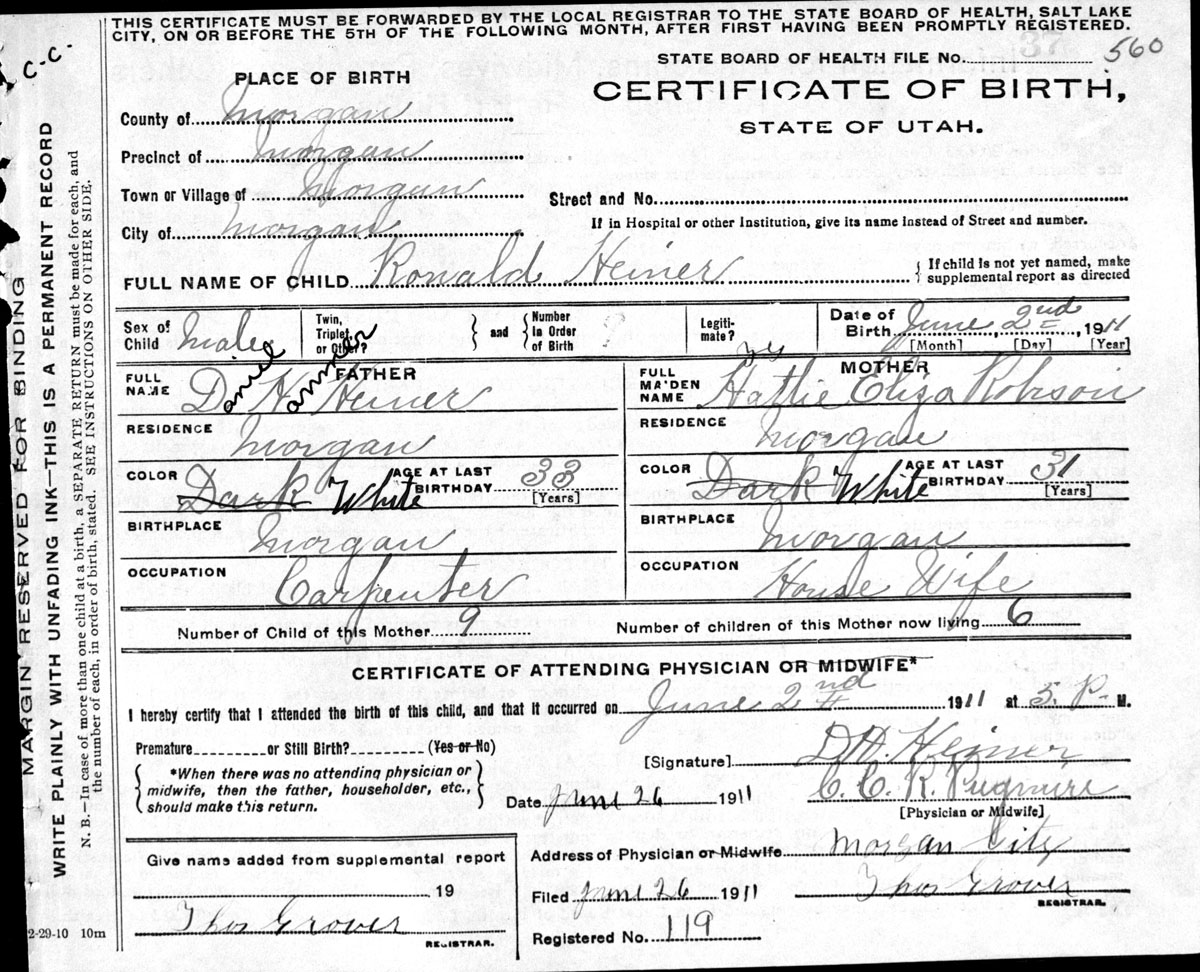 THIS CERTIFICATE MUST BE FORWARDED BY THE LOCAL REGISTRAR TO THE STATE BOARD OF HEALTH, SALT LAKE
CITY, ON OR BEFORE THE 5TH OF THE FOLLOWING MONTH, AFTER FIRST HAVING BEEN PROMPTLY REGISTERED.
C.C.
STATE BOARD OF HEALTH FILE No. 560
PLACE OF BIRTH
CERTIFICATE OF BIRTH,
STATE OF UTAH.
County of Morgan
Precinct of Morgan
Town or Village of Morgan
Street and No.
If in Hospital or other Institution, give its name instead of Street and number.
City of Morgan
FULL NAME OF CHILD Ronald Heiner
{ If child is not yet named, make
supplemental report as directed
Sex of Child Male
Twin, Triplet, or Other? } and { Number In Order of Birth
Legiti-mate? yes
Date of Birth June 2nd, 1911
[Month] [Day] [Year]
FATHER
FULL NAME Daniel Hammer Heiner
RESIDENCE Morgan
COLOR Dark White AGE AT LAST BIRTHDAY 33 [Years]
BIRTHPLACE Morgan
OCCUPATION Carpenter
MOTHER
FULL MAIDEN NAME Hattie Eliza Robison
RESIDENCE Morgan
COLOR Dark White AGE AT LAST BIRTHDAY 31 [Years]
BIRTHPLACE Morgan
OCCUPATION House Wife
Number of Child of this Mother 9 Number of children of this Mother now living 6
CERTIFICATE OF ATTENDING PHYSICIAN OR MIDWIFE*
I hereby certify that I attended the birth of this child, and that it occurred on June 2nd 1911 at 5 P. M.
Premature or Still Birth? (Yes or No)
{ *When there was no attending physician or
midwife, then the father, householder, etc.,
should make this return. }
[Signature] D.H. Heiner
C. C. R. Pugmire
[Physician or Midwife]
Date June 26 1911
Address of Physician or Midwife Morgan City
Give name added from supplemental report
19
Thos Grover
REGISTRAR.
Filed June 26 1911 Thos Grover
REGISTRAR.
Registered No. 119
2-29-10 10m
MARGIN RESERVED FOR BINDING
WRITE PLAINLY WITH UNFADING INK—THIS IS A PERMANENT RECORD
N. B.—In case of more than one child at a birth, a SEPARATE RETURN must be made for each, and
the number of each, in order of birth, stated. SEE INSTRUCTIONS ON OTHER SIDE.